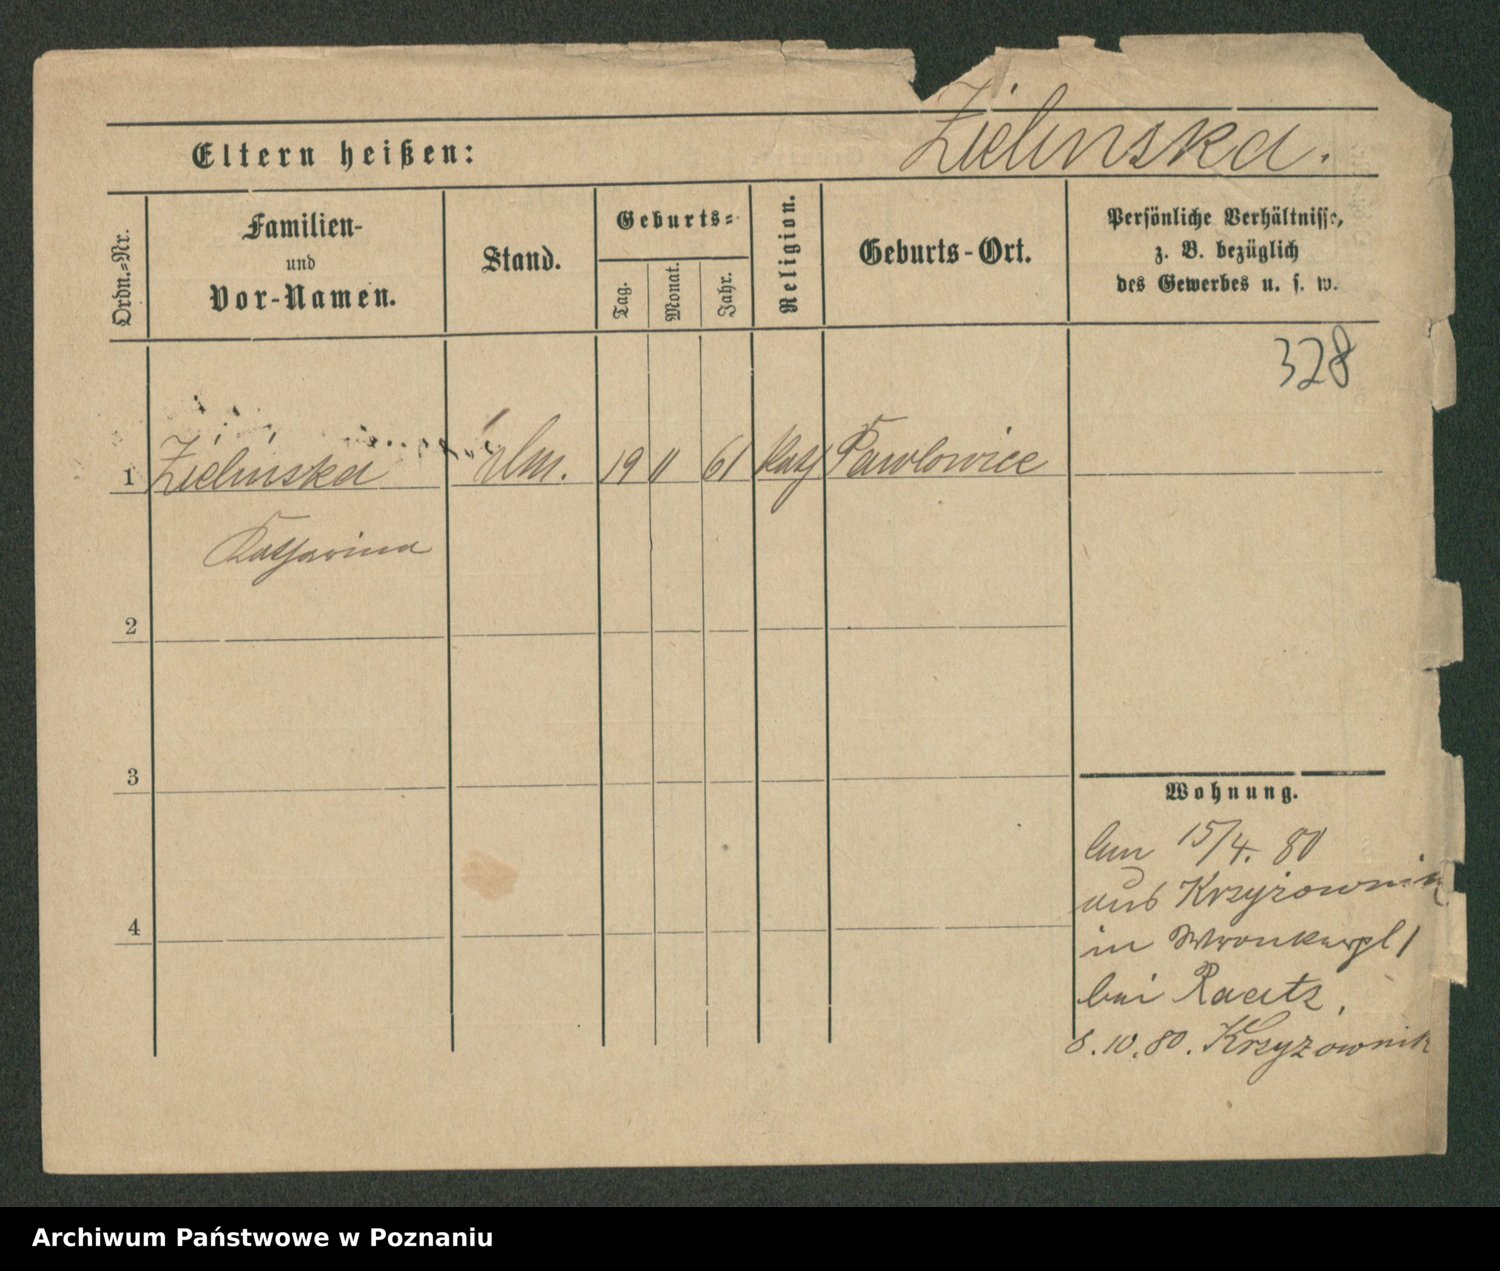 Zielinska.
Eltern heißen:
Ordn.=Nr.
Familien-
und
Vor-Namen.
Stand.
Geburts=
Tag.
Monat.
Jahr.
Religion.
Geburts-Ort.
Persönliche Verhältnisse,
z. B. bezüglich
des Gewerbes u. s. w.
328
1 Zielinska 19 11 61 kath Pawlowice
Katharina
2
3
4
Wohnung.
15/4. 80
aus Krzyżownik
in Wronkerpl 1
bei
8.10.80. Krzyzownik
Archiwum Państwowe w Poznaniu